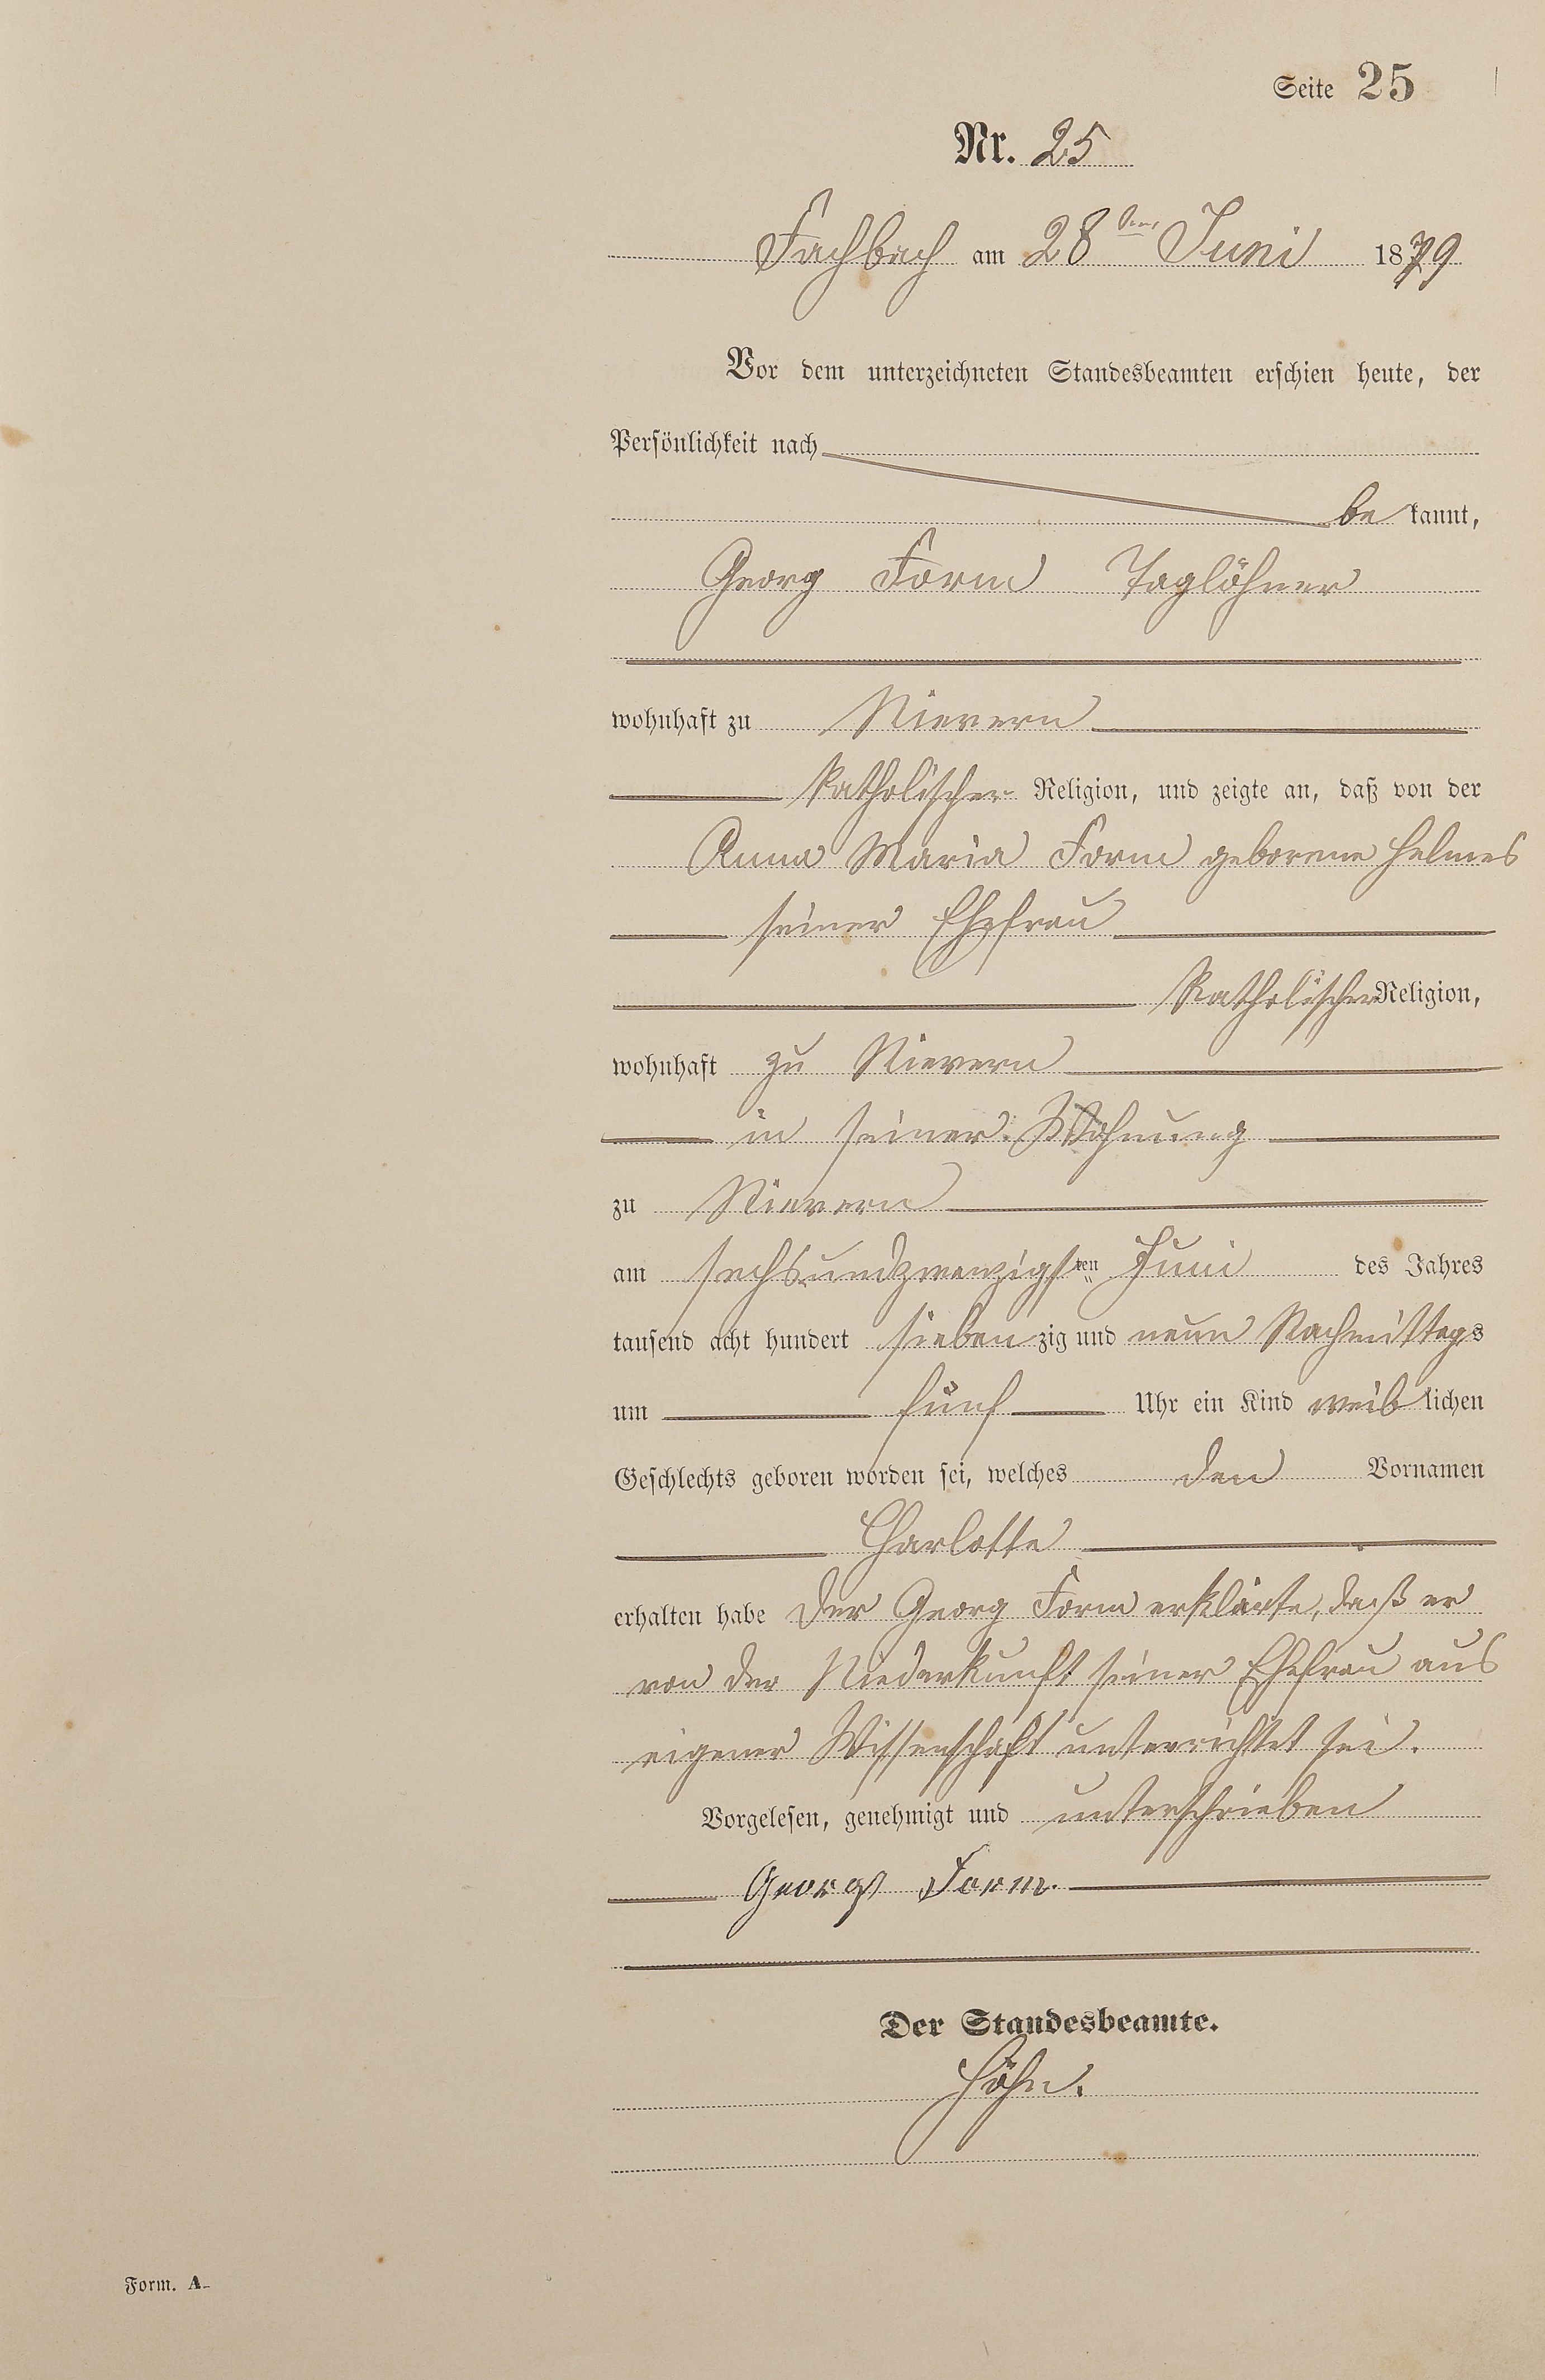 Seite 25
Nr. 25
Fachbach am 28ten Juni 1879
Vor dem unterzeichneten Standesbeamten erschien heute, der
Persönlichkeit nach
be kannt,
Georg Form Taglöhner
wohnhaft zu Nievern
katholischer Religion, und zeigte an, daß von der
Anna Maria Form geborene Helmes
seiner Ehefrau
Katholischer Religion,
wohnhaft zu Nievern
in seiner Wohnung
zu Nievern
am sechsundzwanzigsten Juni des Jahres
tausend acht hundert sieben zig und neun Nachmittags
um fünf Uhr ein Kind weib lichen
Geschlechts geboren worden sei, welches den Vornamen
Charlotte
erhalten habe Der Georg Form erklärte, daß er
von der Niederkunft seiner Ehefrau aus
eigener Wissenschaft unterrichtet sei.
Vorgelesen, genehmigt und unterschrieben
Georg Form.
Der Standesbeamte.
Höhn.
Form. A.